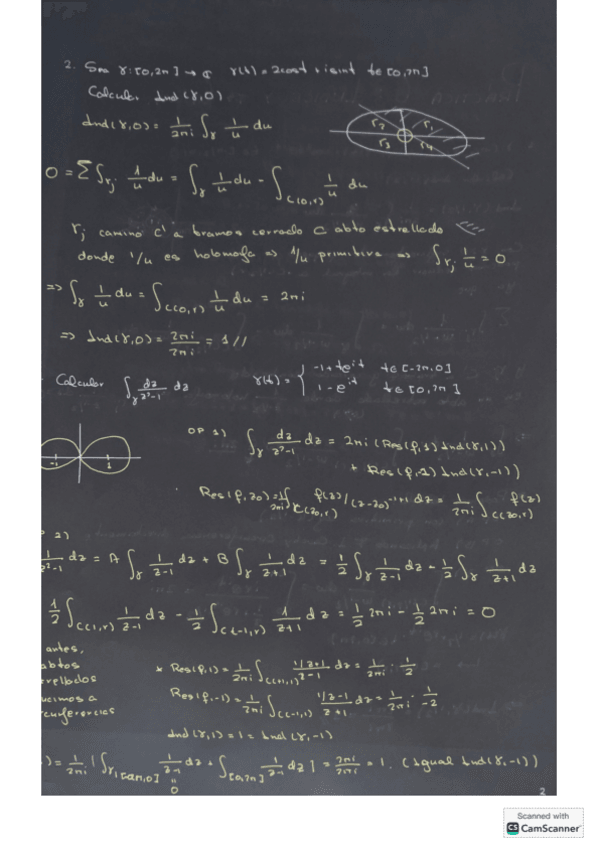 2. Sea γ: [0,2π] → ℂ γ(t) = 2cost + isint t∈[0,2π]
Calcular Ind(γ,0)
Ind(γ,0) = 1/2πi ∫γ 1/u du
Γ2 Γ1
Γ3 Γ4
0 = Σ ∫Γj 1/u du = ∫γ 1/u du - ∫C(0,r) 1/u du
Γj camino C¹ a tramos cerrado ⊂ abto estrellado
donde 1/u es holomofa ⇒ 1/u primitiva ⇒ ∫Γj 1/u = 0
⇒ ∫γ 1/u du = ∫C(0,r) 1/u du = 2πi
⇒ Ind(γ,0) = 2πi/2πi = 1//
Calcular ∫γ dz/z²-1 dz γ(t) = { -1+e^it t∈[-2π,0]
1-e^it t∈[0,2π]
-1 1
OP 1) ∫γ dz/z²-1 dz = 2πi (Res(f,1) Ind(γ,1))
+ Res(f,-1) Ind(γ,-1))
Res(f,z0) = 1/2πi ∫C(z0,r) f(z)/(z-z0)^-1+1 dz = 1/2πi ∫C(z0,r) f(z)
2)
1/z²-1 dz = A ∫γ 1/z-1 dz + B ∫γ 1/z+1 dz = 1/2 ∫γ 1/z-1 dz - 1/2 ∫γ 1/z+1 dz
1/2 ∫C(1,r) 1/z-1 dz - 1/2 ∫C(-1,r) 1/z+1 dz = 1/2 2πi - 1/2 2πi = 0
antes,
abtos
rellados
ucimos a
rcunferencias
* Res(f,1) = 1/2πi ∫C(1,1) 1/z+1/z-1 dz = 1/2πi · 1/2
Res(f,-1) = 1/2πi ∫C(-1,1) 1/z-1/z+1 dz = 1/2πi · 1/-2
Ind(γ,1) = 1 = Ind(γ,-1)
) = 1/2πi [∫γ,[-2π,0] 1/z-1 dz + ∫[0,2π] 1/z-1 dz] = 2πi/2πi = 1. (igual Ind(γ,-1))
"
0
2
Scanned with
CS CamScanner